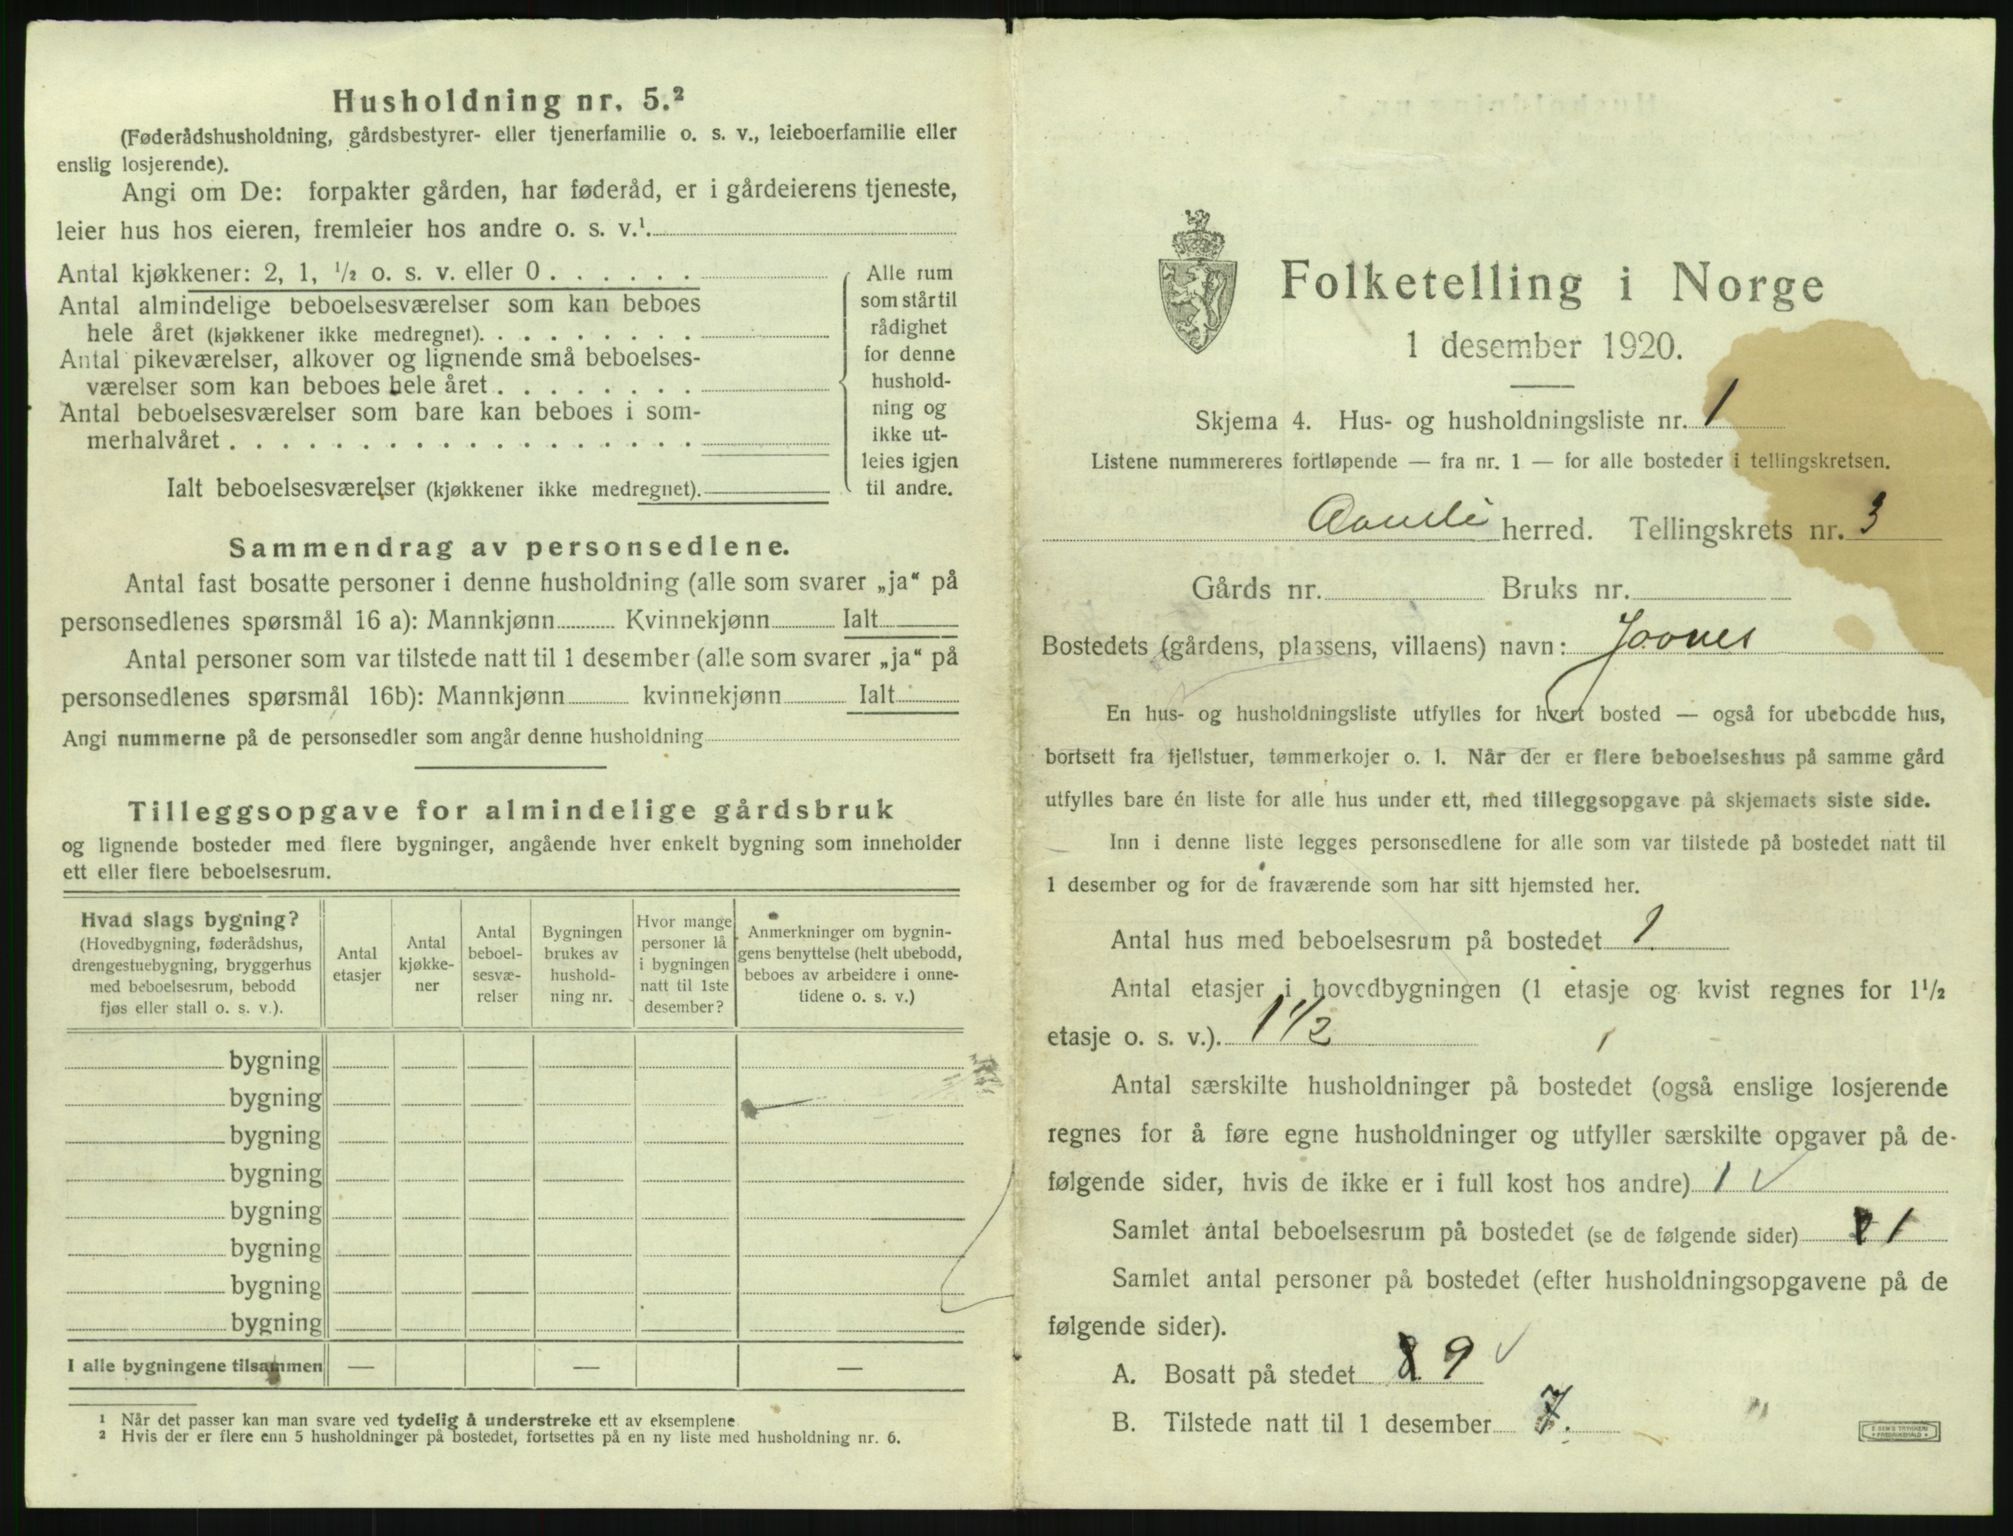 Husholdning nr. 5.²
(Føderådshusholdning, gårdsbestyrer- eller tjenerfamilie o. s. v., leieboerfamilie eller
enslig losjerende).
Angi om De: forpakter gården, har føderåd, er i gårdeierens tjeneste,
leier hus hos eieren, fremleier hos andre o. s. v.¹
Antal kjøkkener: 2, 1, ½ o. s. v. eller 0 . . . . . .
Antal almindelige beboelsesværelser som kan beboes
hele året (kjøkkener ikke medregnet). . . . . . . . .
Antal pikeværelser, alkover og lignende små beboelses-
værelser som kan beboes hele året . . . . . . . .
Antal beboelsesværelser som bare kan beboes i som-
merhalvåret . . . . . . . . . . . . . . . . . .
Ialt beboelsesværelser (kjøkkener ikke medregnet).
Alle rum
som står til
rådighet
for denne
hushold-
ning og
ikke ut-
leies igjen
til andre.
Sammendrag av personsedlene.
Antal fast bosatte personer i denne husholdning (alle som svarer „ja“ på
personsedlenes spørsmål 16 a): Mannkjønn Kvinnekjønn Ialt
Antal personer som var tilstede natt til 1 desember (alle som svarer „ja“ på
personsedlenes spørsmål 16b): Mannkjønn kvinnekjønn Ialt
Angi nummerne på de personsedler som angår denne husholdning
Tilleggsopgave for almindelige gårdsbruk
og lignende bosteder med flere bygninger, angående hver enkelt bygning som inneholder
ett eller flere beboelsesrum.
Hvad slags bygning?
(Hovedbygning, føderådshus,
drengestuebygning, bryggerhus
med beboelsesrum, bebodd
fjøs eller stall o. s. v.).
Antal
etasjer
Antal
kjøkke-
ner
Antal
beboel-
sesvæ-
relser
Bygningen
brukes av
hushold-
ning nr.
Hvor mange
personer lå
i bygningen
natt til 1ste
desember?
Anmerkninger om bygnin-
gens benyttelse (helt ubebodd,
beboes av arbeidere i onne-
tidene o. s. v.)
bygning
bygning
bygning
bygning
bygning
bygning
bygning
bygning
I alle bygningene tilsammen — — —
¹ Når det passer kan man svare ved tydelig å understreke ett av eksemplene
² Hvis der er flere enn 5 husholdninger på bostedet, fortsettes på en ny liste med husholdning nr. 6.
Folketelling i Norge
1 desember 1920.
Skjema 4. Hus- og husholdningsliste nr. 1
Listene nummereres fortløpende — fra nr. 1 — for alle bosteder i tellingskretsen.
herred. Tellingskrets nr. 3
Gårds nr. Bruks nr.
Bostedets (gårdens, plassens, villaens) navn:
En hus- og husholdningsliste utfylles for hvert bosted — også for ubebodde hus,
bortsett fra fjellstuer, tømmerkojer o. l. Når der er flere beboelseshus på samme gård
utfylles bare én liste for alle hus under ett, med tilleggsopgave på skjemaets siste side.
Inn i denne liste legges personsedlene for alle som var tilstede på bostedet natt til
1 desember og for de fraværende som har sitt hjemsted her.
Antal hus med beboelsesrum på bostedet 1
Antal etasjer i hovedbygningen (1 etasje og kvist regnes for 1½
etasje o. s. v.). 1 1/2
Antal særskilte husholdninger på bostedet (også enslige losjerende
regnes for å føre egne husholdninger og utfyller særskilte opgaver på de-
følgende sider, hvis de ikke er i full kost hos andre) 1 ✓
Samlet antal beboelsesrum på bostedet (se de følgende sider) 1
Samlet antal personer på bostedet (efter husholdningsopgavene på de
følgende sider).
A. Bosatt på stedet 9 ✓
B. Tilstede natt til 1 desember 7.